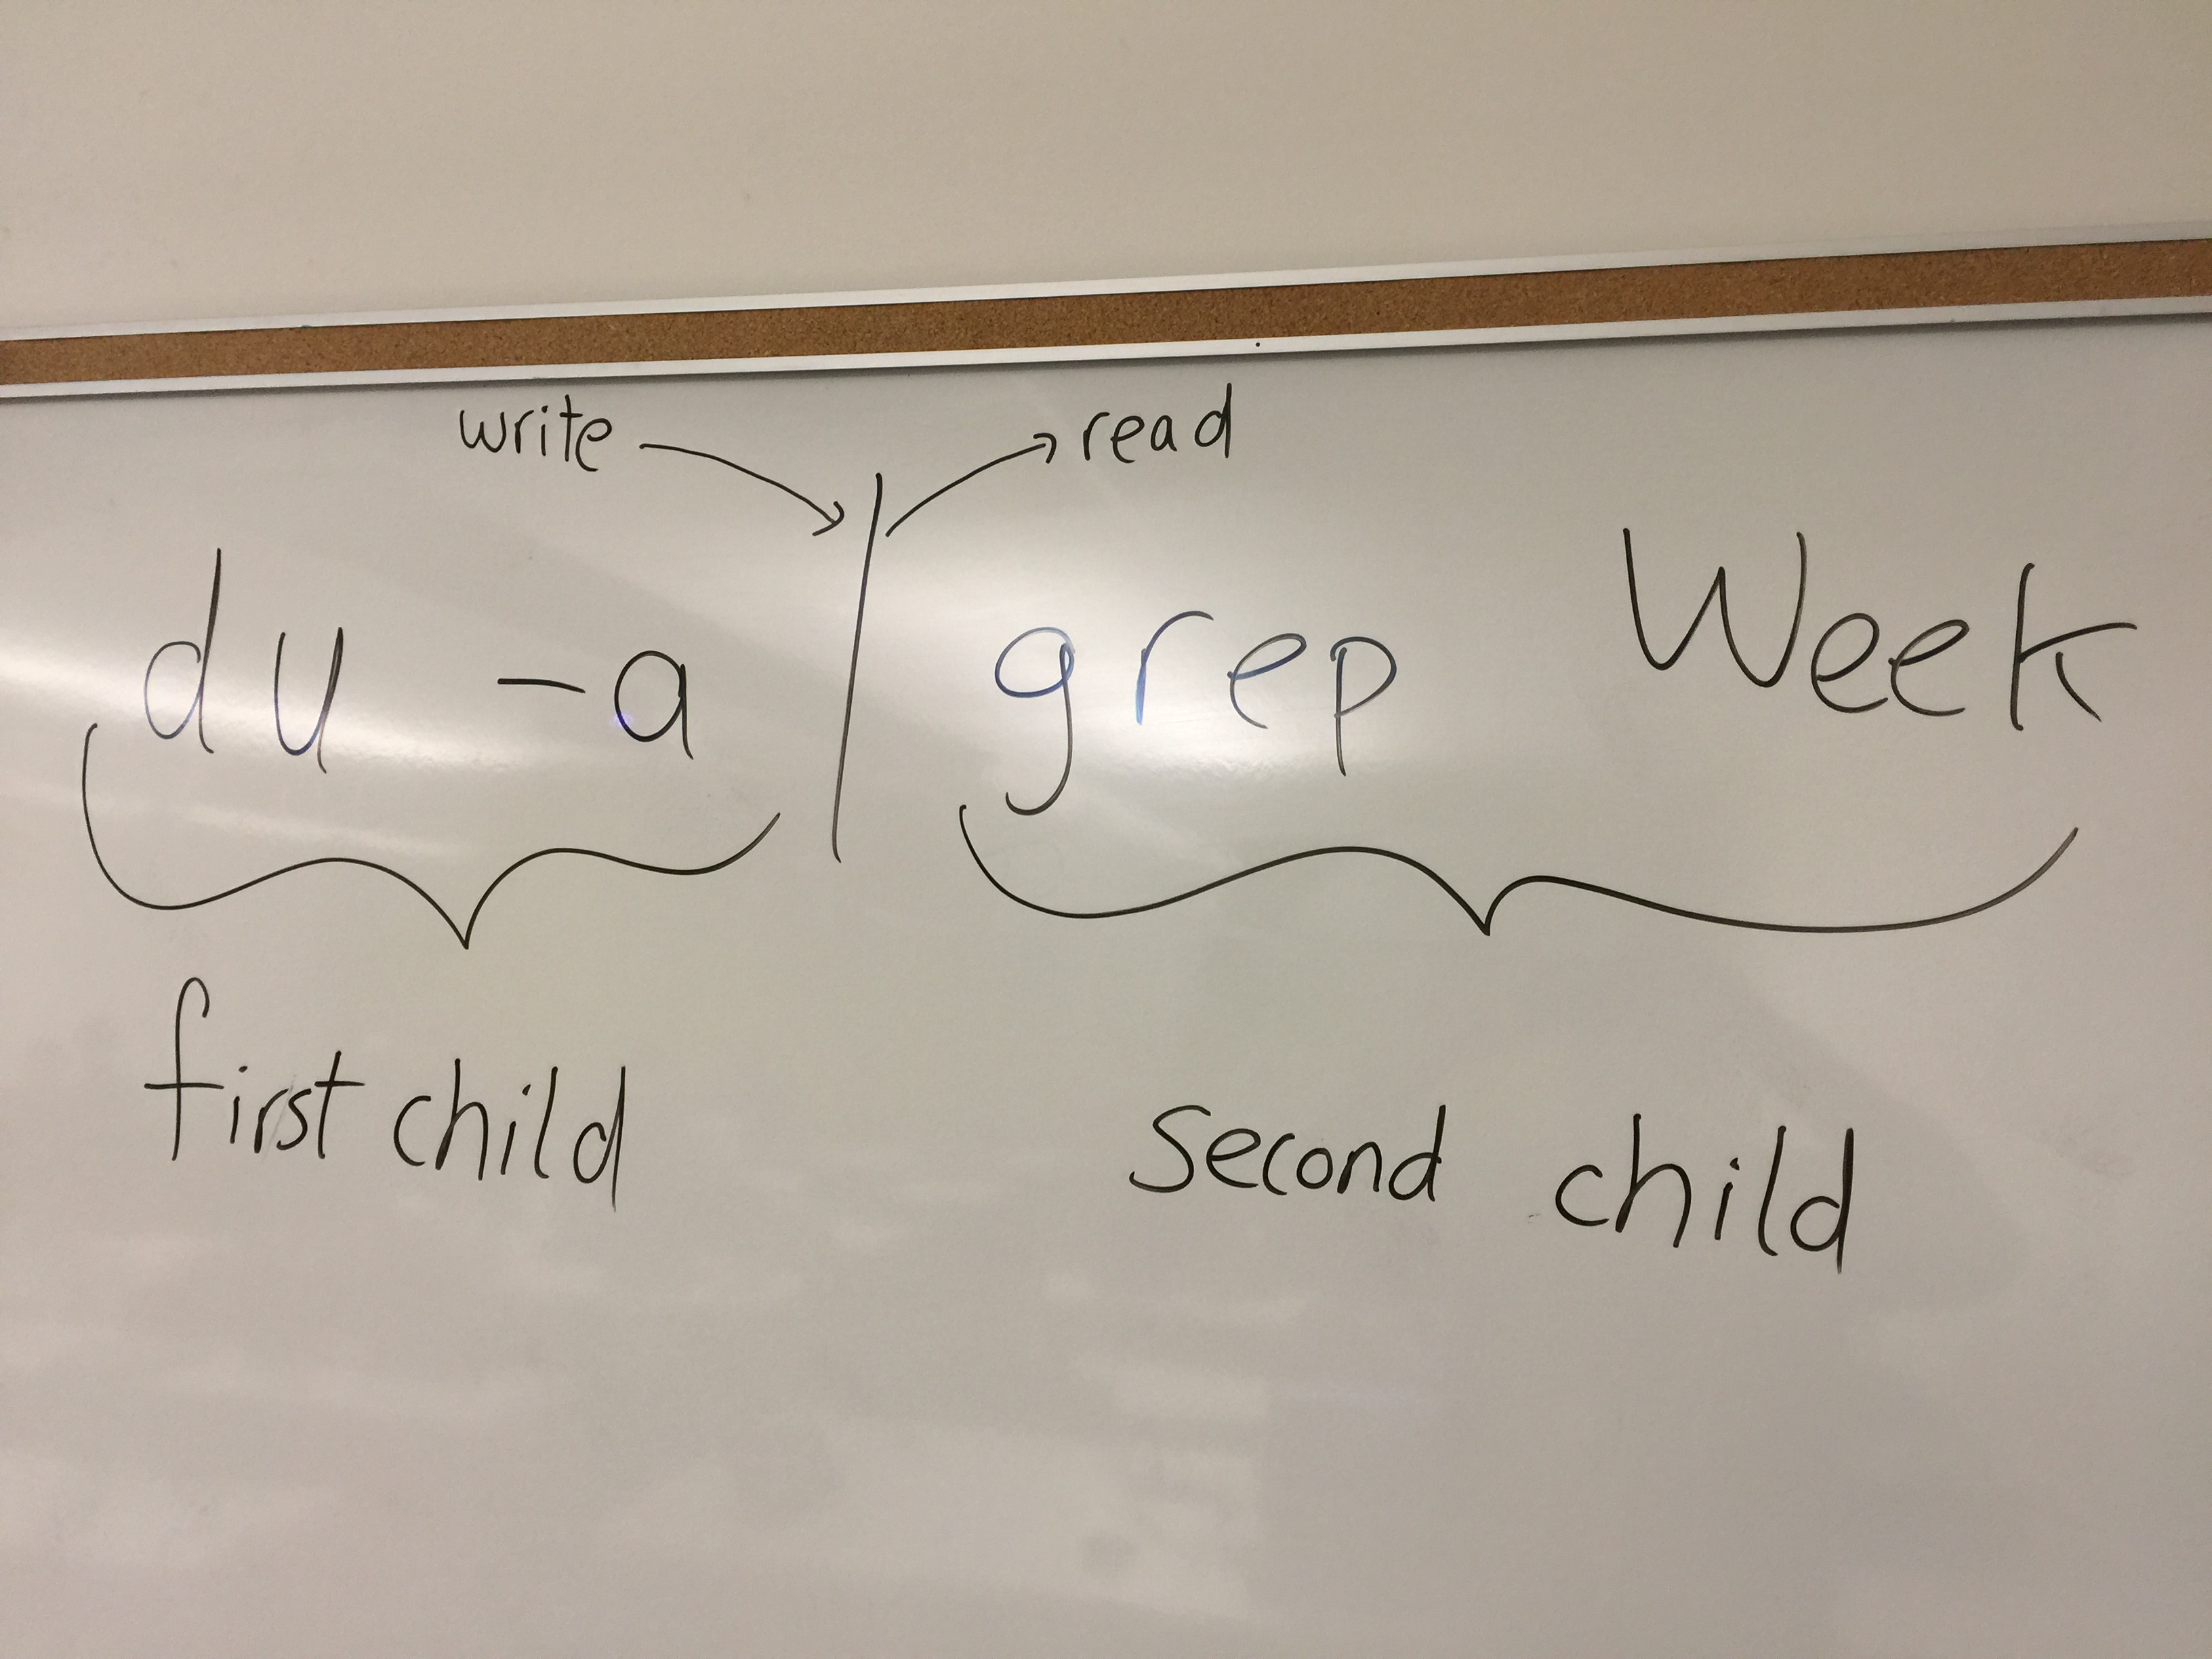 write read
du -a | grep Week
first child second child